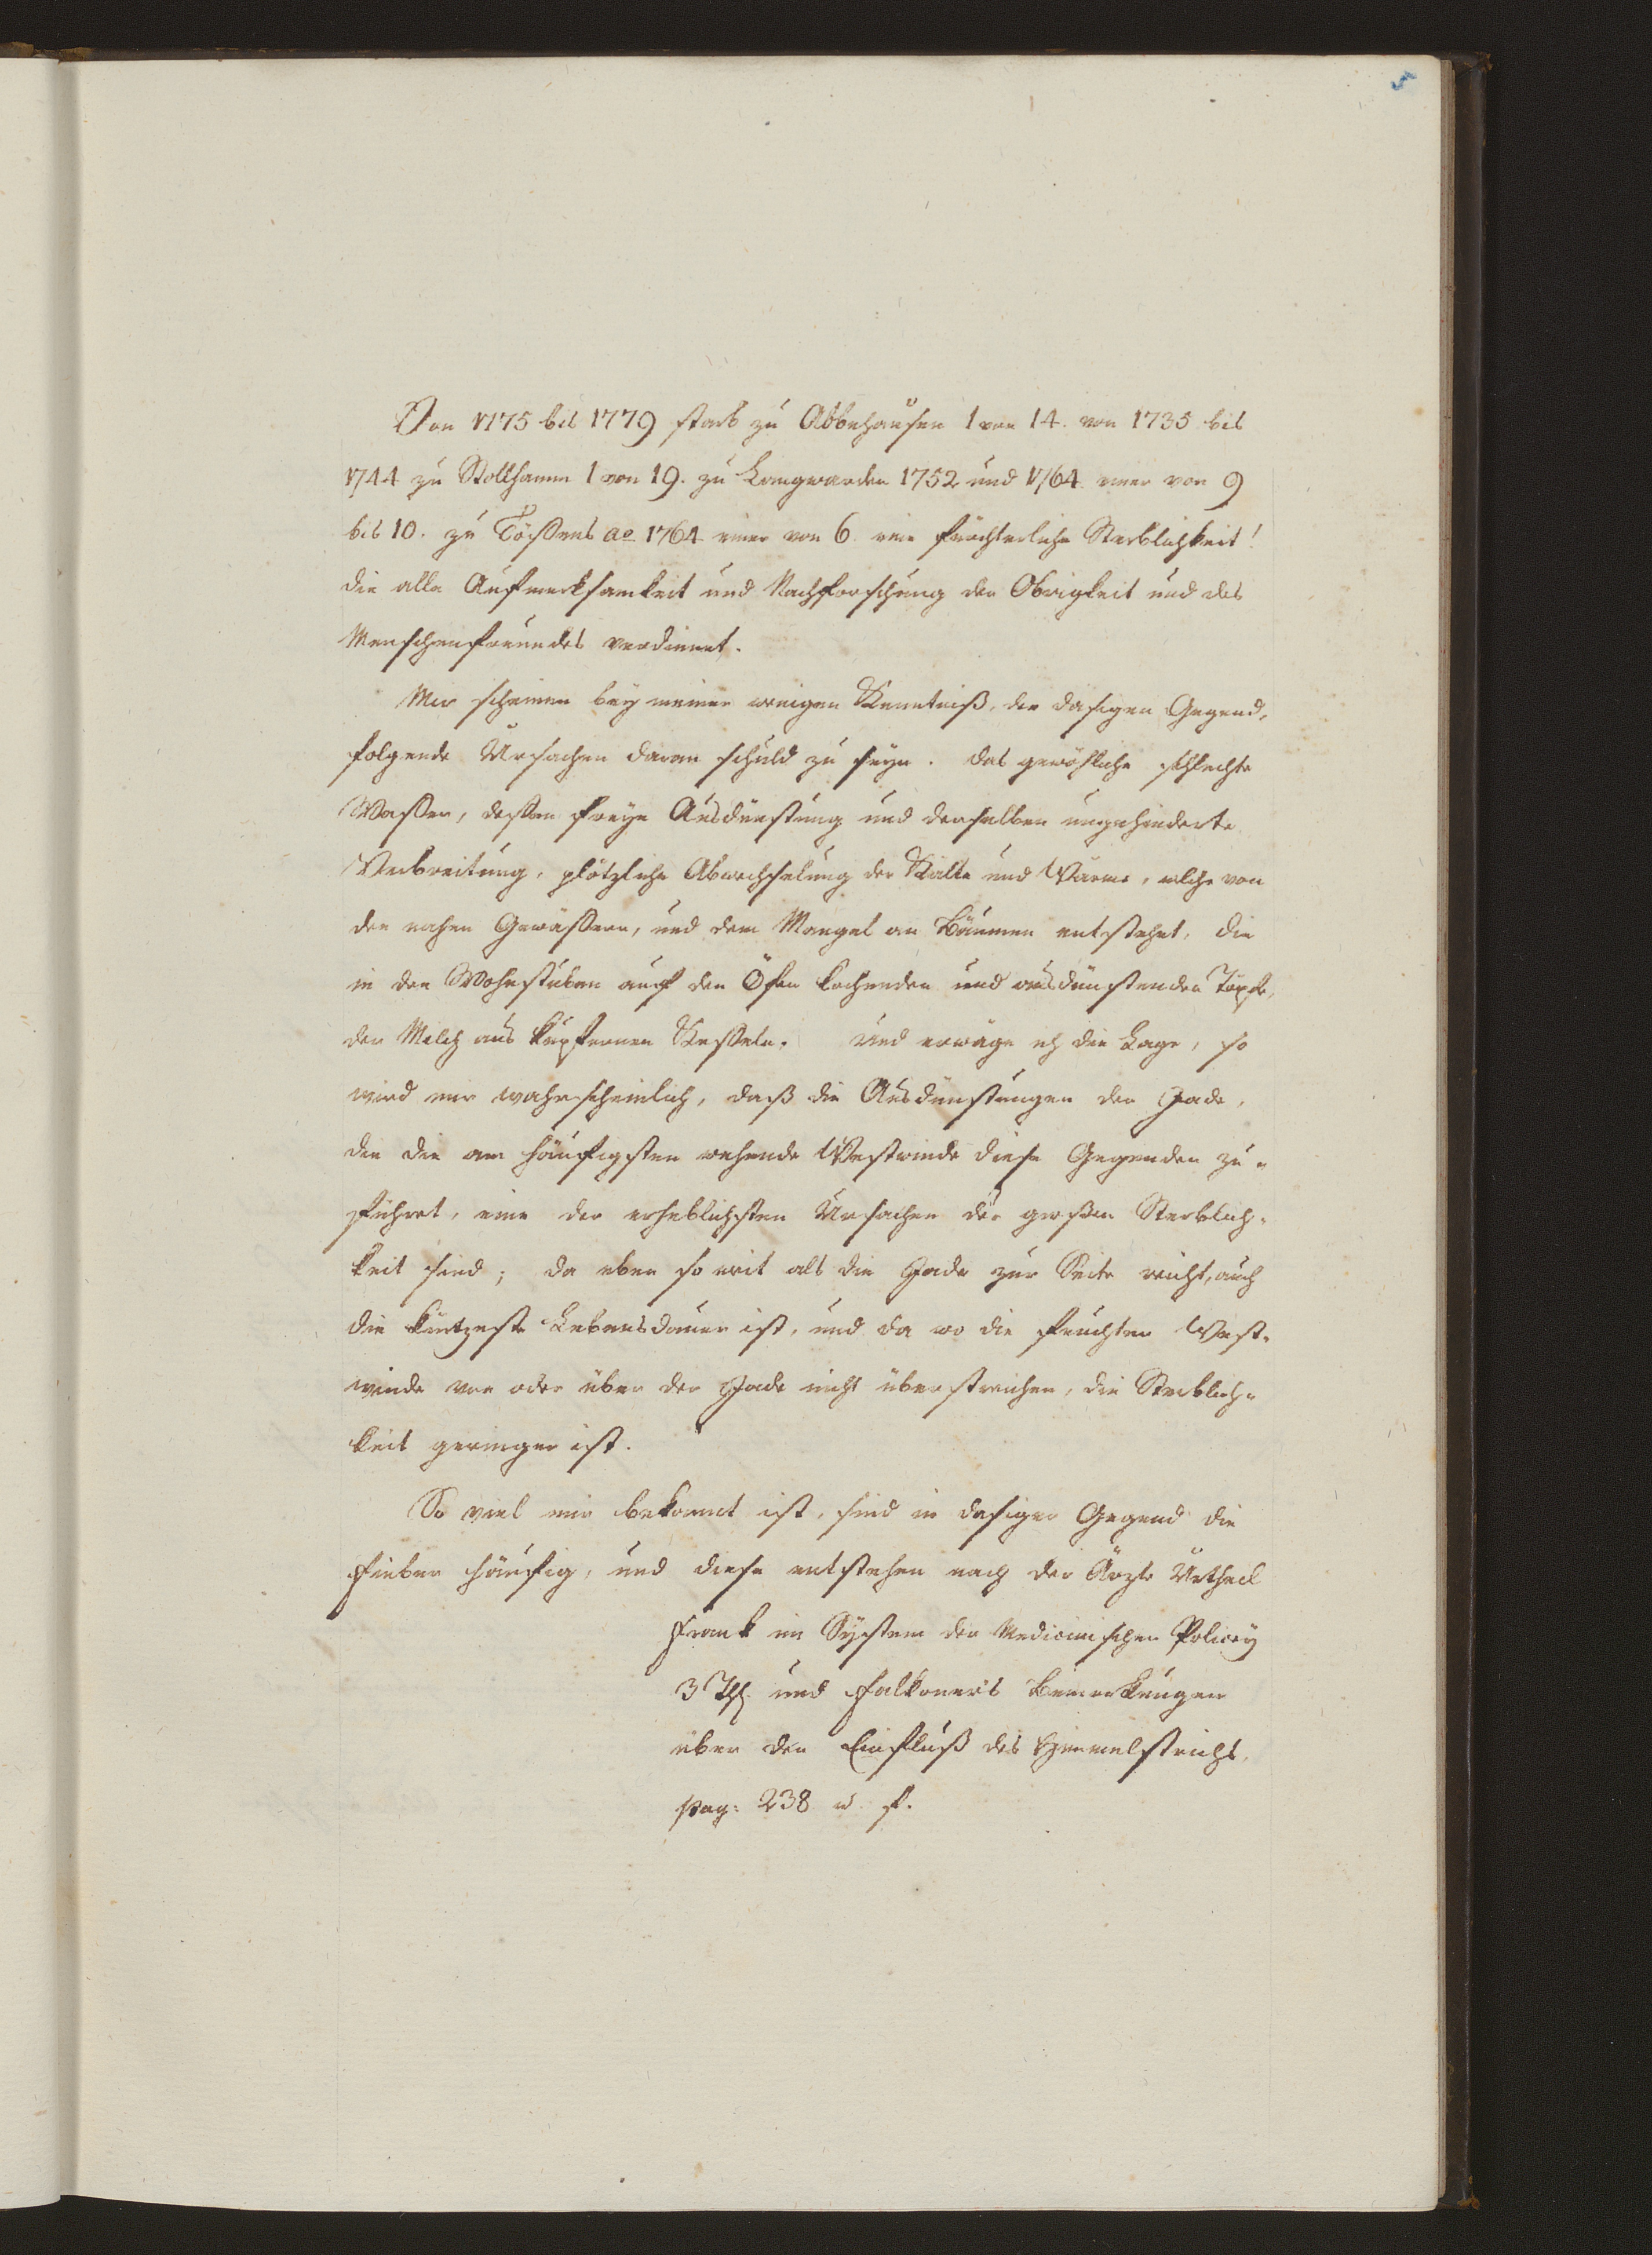 5
Von 1775 bis 1779 starb zu Abbehausen 1 von 14. von 1735 bis
1744 zu Stollhamm 1 von 19. zu Langwarden 1752 und 1764 einer von 9
bis 10. zu Tößens ao 1764 einer von 6. eine fürchterliche Sterblichkeit!
die alle Aufmerksamkeit und Nachforschung der Obrigkeit und des
Menschenfreundes verdienet.
Mir scheinen bey meiner wenigen Kenntniß, der dasigen Gegend,
folgende Ursachen daran schuld zu seyn. das gewöhliche schlechte
Waßer, deßen freye Ausdünstung und derselben ungehinderte
Verbreitung, plötzliche Abwechselung der Kälte und Wärme, welche von
den nahen Gewäßern, und dem Mangel an Bäumen entstehet, die
in den Wohnstuben auf den Öfen kochenden und ausdünstenden Töpfe,
der Milch aus kupfernen Keßeln. Und erwäge ich die Lage, so
wird mir wahrscheinlich, daß die Ausdünstungen der Jade,
die die am häufigsten wehende Westwinde diese Gegenden zu-
führet, eine der erheblichsten Ursachen der großen Sterblich-
keit sind; da eben so weit als die Jade zur Seite reicht, auch
die kürtzeste Lebensdauer ist, und da wo die feuchten West-
winde von oder über der Jade nicht überstreichen, die Sterblich-
keit geringer ist.
So viel mir bekannt ist, sind in dasiger Gegend die
Fieber häufig, und diese entstehen nach der Ärzte Urtheil
Frank im System der Medicinischen Policey
3 Th. und Falkoner's Bemerkungen
über den Einfluß des Himmelstrichs,
pag: 238 u. f.